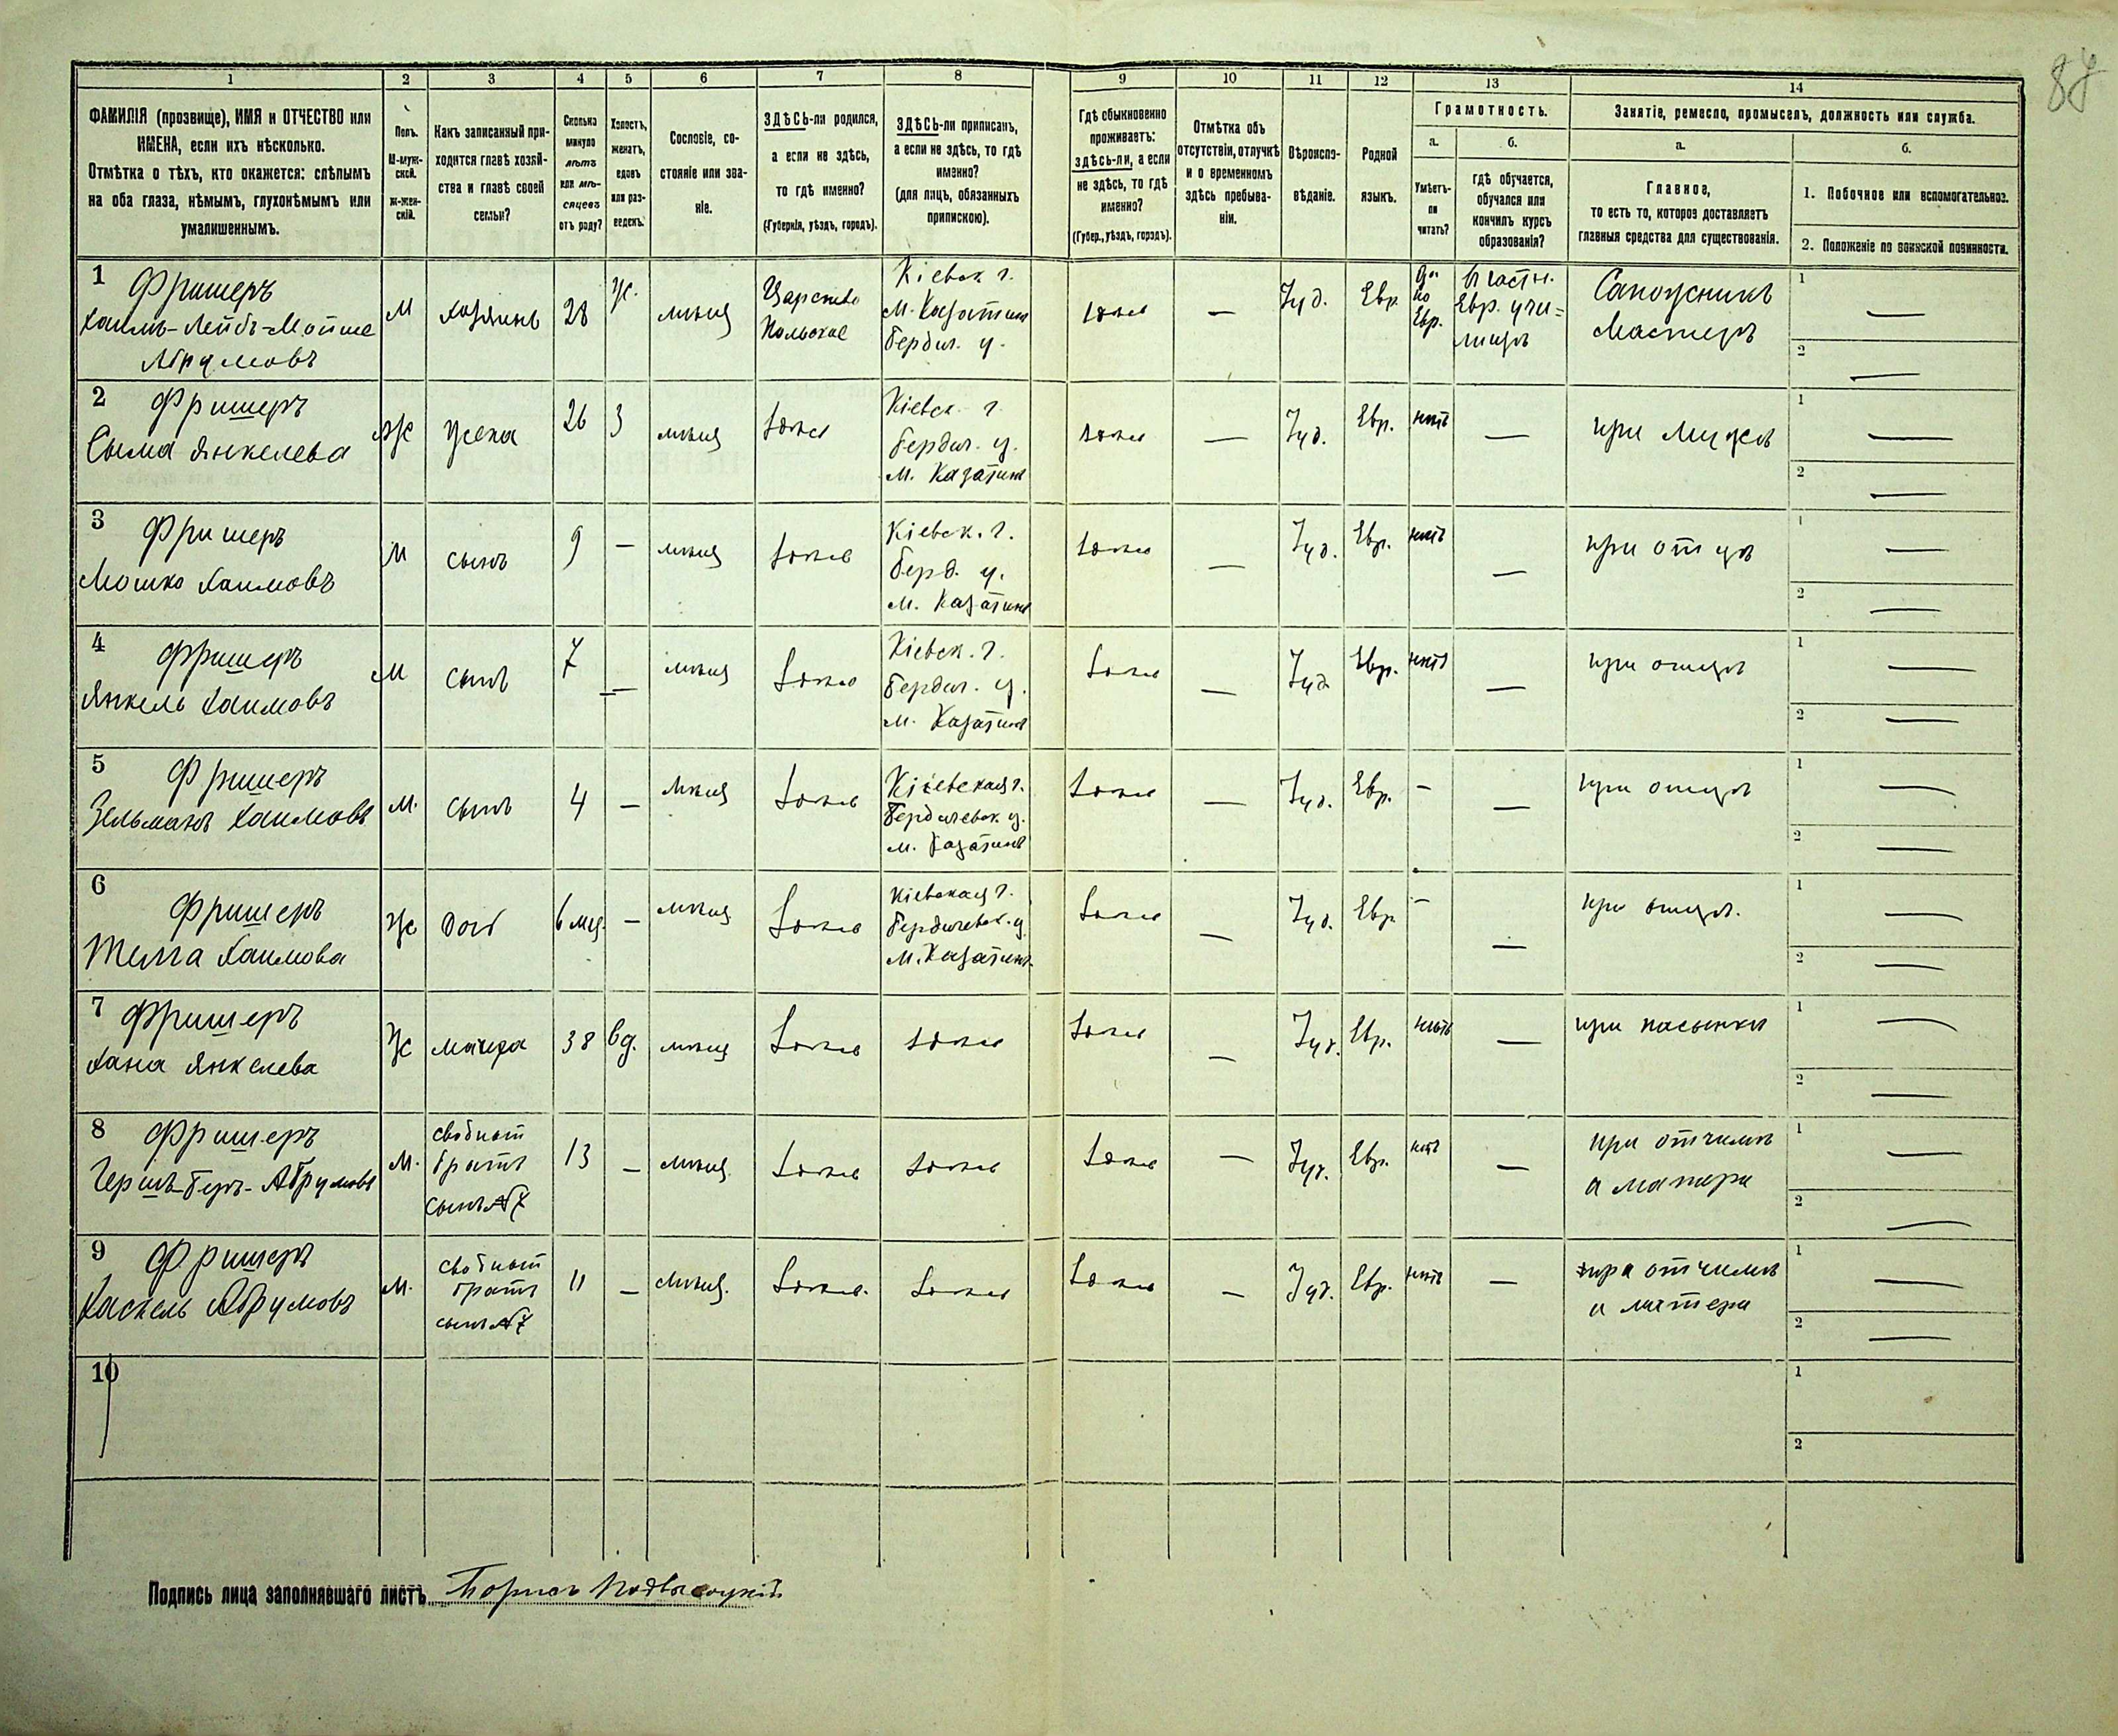 87
1
2
3
4
5
6
7
8
9
10
11
12
13
14
ФАМИЛІЯ (прозвище), ИМЯ и ОТЧЕСТВО или
ИМЕНА, если ихъ нѣсколько.
Отмѣтка о тѣхъ, кто окажется: слѣпымъ
на оба глаза, нѣмымъ, глухонѣмымъ или
умалишеннымъ.
Полъ.
М-муж-
ской.
Ж-жен-
скій.
Какъ записанный при-
ходится главѣ хозяй-
ства и главѣ своей
семьи?
Сколько
минуло
лѣтъ
или мѣ-
сяцевъ
отъ роду?
Холостъ,
женатъ,
вдовъ
или раз-
веденъ.
Сословіе, со-
стояніе или зва-
ніе.
ЗДѢСЬ-ли родился,
а если не здѣсь,
то гдѣ именно?
(Губернія, уѣздъ, городъ).
ЗДѢСЬ-ли приписанъ,
а если не здѣсь, то гдѣ
именно?
(для лицъ, обязанныхъ
припискою).
Гдѣ обыкновенно
проживаетъ:
здѣсь-ли, а если
не здѣсь, то гдѣ
именно?
(Губер., уѣздъ, городъ).
Отмѣтка объ
отсутствіи, отлучкѣ
и о временномъ
здѣсь пребыва-
ніи.
Вѣроиспо-
вѣданіе.
Родной
языкъ.
Грамотность.
а.
Умѣетъ-
ли
читать?
б.
гдѣ обучается,
обучался или
кончилъ курсъ
образованія?
Занятіе, ремесло, промыселъ, должность или служба.
а.
Главное,
то есть то, которое доставляетъ
главныя средства для существованія.
б.
1. Побочное или вспомогательное.
2. Положеніе по воинской повинности.
1 Фришеръ
Хаимъ-Лейбъ-Мойше
Абрумовъ
М
хозяинъ
28
ж.
мѣщ
Царство
Польское
Кіевск г.
м. Казатин
Бердич. у.
здѣсь
—
Іуд.
Евр.
да
по
Евр.
Частн.
Евр. учи=
лищѣ
Сапожникъ
Мастеръ
1 —
2 —
2 Фришеръ
Сыма Янкелева
Ж
жена
26
З
мѣщ
здѣсь
Кіевск г.
Бердич. у.
м. Казатинъ
здѣсь
—
Іуд.
Евр.
нѣтъ
—
при мужѣ
1 —
2 —
3 Фришеръ
Мошко Хаимовъ
М
сынъ
9
—
мѣщ
здѣсь
Кіевск. г.
Берд. у.
м. Казатинъ
здѣсь
—
Іуд.
Евр.
нѣтъ
—
при отцѣ
1 —
2 —
4 Фришеръ
Янкель Хаимовъ
М
сынъ
7
—
мѣщ
здѣсь
Кіевск. г.
Бердич. у.
м. Казатинъ
здѣсь
—
Іуд
Евр.
нѣтъ
—
при отцѣ
1 —
2 —
5 Фришеръ
Зельманъ Хаимовъ
М.
сынъ
4
—
мѣщ
здѣсь
Кіевская г.
Бердичевск. у.
м. Казатинъ
здѣсь
—
Іуд.
Евр.
—
—
при отцѣ
1 —
2 —
6 Фришеръ
Хаимова
Ж
доч
6 мц.
—
мѣщ
здѣсь
Кіевская г.
Бердичевск. у.
м. Казатинъ
здѣсь
—
Іуд.
Евр.
—
—
при отцѣ.
1 —
2 —
7 Фришеръ
Хана Янкелева
Ж
мачуха
38
вд.
мѣщ
здѣсь
здѣсь
здѣсь
—
Іуд.
Евр.
нѣтъ
—
при пасынки
1 —
2 —
8 Фришеръ
Гершъ-Беръ-Абрумовъ
М.
сводный
братъ
сынъ №7
13
—
мѣщ.
здѣсь
здѣсь
здѣсь
—
Іуд.
Евр.
нѣтъ
—
при отчимѣ
и матери
1 —
2 —
9 Фришеръ
Хаскель Абрумовъ
М.
сводный
братъ
сынъ №7
11
—
мѣщ.
здѣсь.
здѣсь
здѣсь
—
Іуд.
Евр.
нѣтъ
—
при отчимѣ
и матери
1 —
2 —
10
1
2
Подпись лица заполнявшаго листъ Борисъ Подвысоцкій